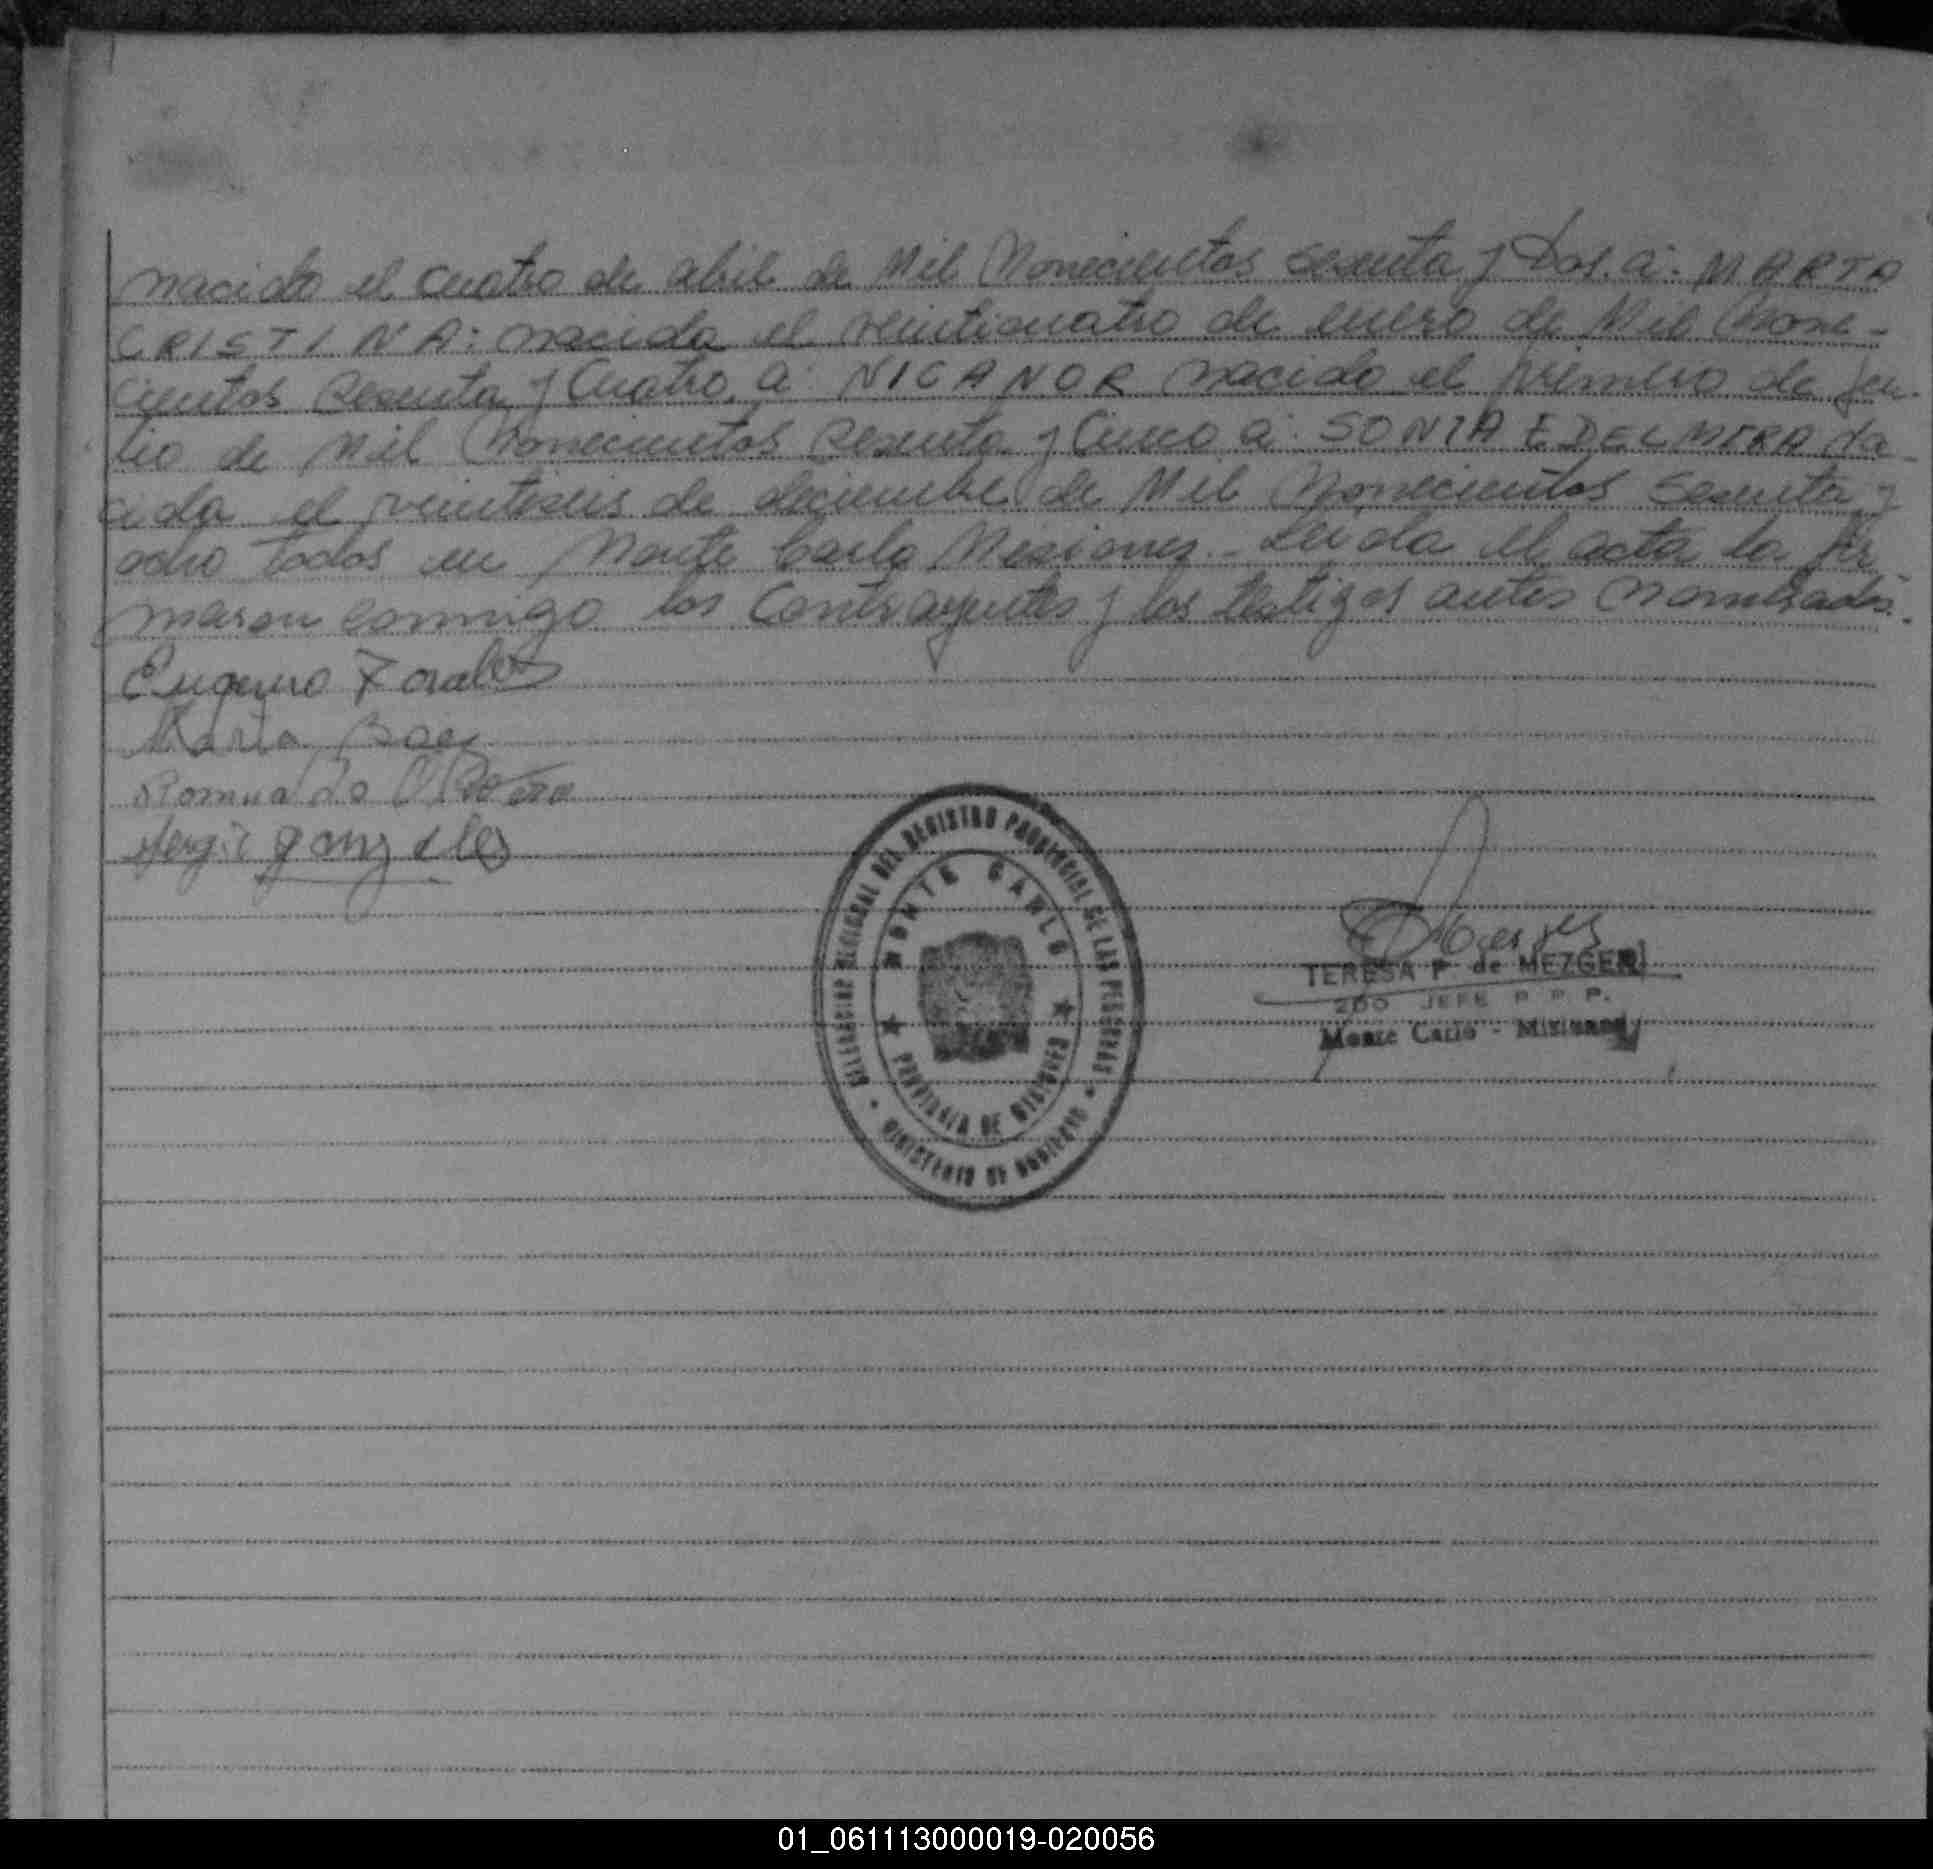 nacido el cuatro de abril de Mil Novecientos sesenta y Dos. a: MARTA
CRISTINA: nacida el veinticuatro de enero de Mil Nove-
cientos sesenta y Cuatro, a: NICANOR nacido el primero de ju-
lio de Mil Novecientos sesenta y Cinco a: SONIA EDELMIRA na-
cida el veintiseis de diciembre de Mil Novecientos sesenta y
ocho todos en Monte Carlo Misiones.- Leida el acta la fir
maron conmigo los Contrayentes y los testigos antes nombrados.
Eugenio
Maria Baez
Romualdo
Sergio gonzalez
DELEGACION REGIONAL DEL REGISTRO PROVINCIAL DE LAS PERSONAS
MONTE CARLO
PROVINCIA DE MISIONES
MINISTERIO DE GOBIERNO
TERESA P de MEZGER
2DO JEFE P. P. P.
Monte Carlo - Misiones
01_061113000019-020056